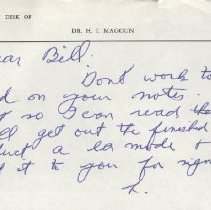 DESK OF
DR. H. I. MAGOUN
ear Bill:
Don't work to
d on your notes.
t so I can read
ll get out the finished
duct a la mode +
d it to you for sign
h.